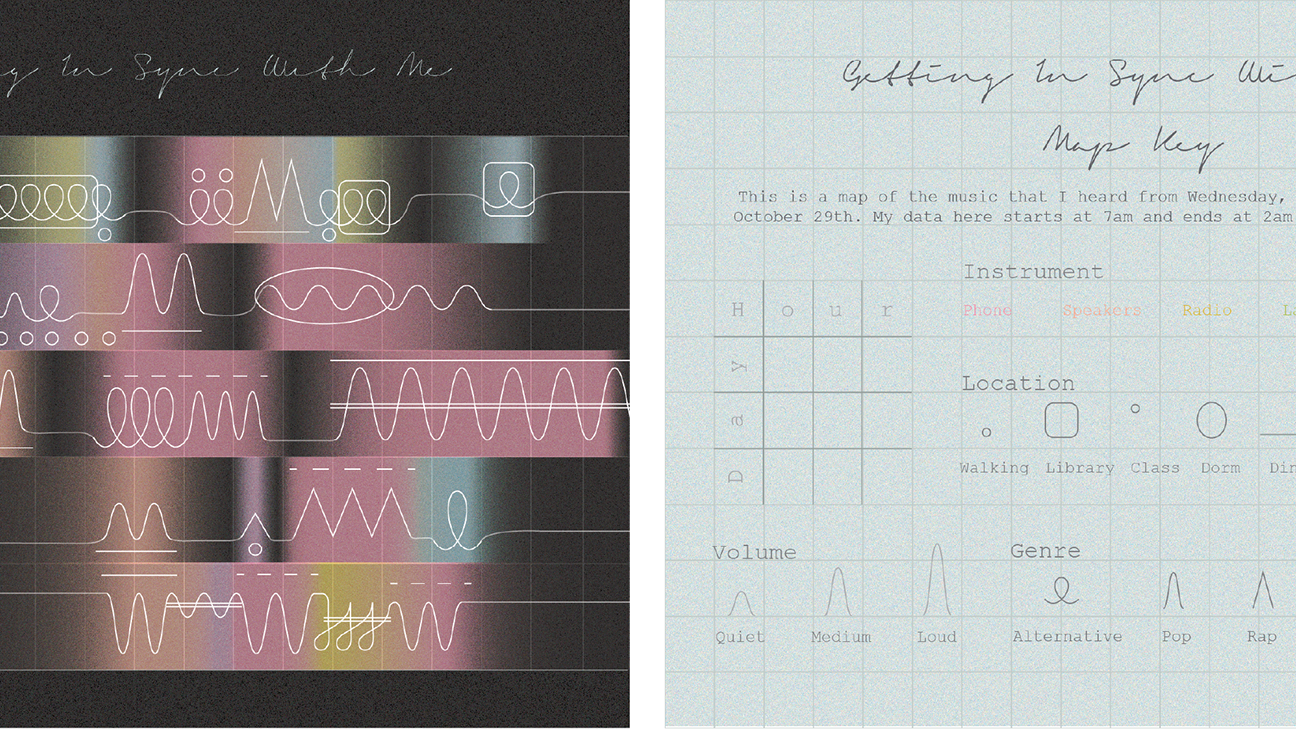 g In Sync With Me
Getting In Sync Wi
Map Key
This is a map of the music that I heard from Wednesday,
October 29th. My data here starts at 7am and ends at 2am
Instrument
Phone Speakers Radio La
Hour
Day
Location
Walking Library Class Dorm Din
Volume
Quiet Medium Loud
Genre
Alternative Pop Rap